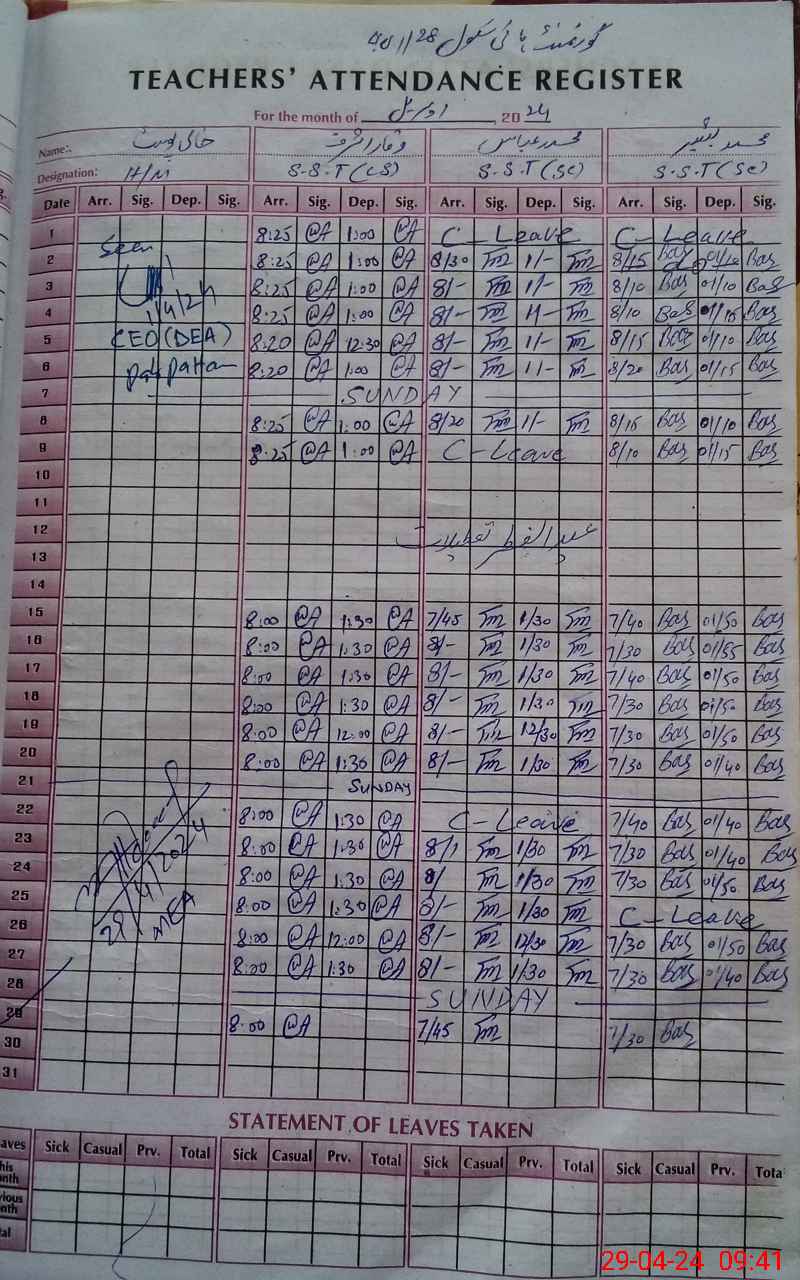 گورنمنٹ ہائی سکول 28/
TEACHERS' ATTENDANCE REGISTER
For the month of اپریل , 2024
Name: خالی پوسٹ وقار اشرف محمد عباس محمد بشیر
Designation: H/M S.S.T(CS) S.S.T(Sc) S.S.T(Sc)
Date Arr. Sig. Dep. Sig. Arr. Sig. Dep. Sig. Arr. Sig. Dep. Sig. Arr. Sig. Dep. Sig.
1 8:25 @A 1:00 @A C-Leave C-Leave
2 Seen 8:25 @A 1:00 @A 8/30 Tm 1/- Tm 8/15 Bas 01/10 Bas
3 8:25 @A 1:00 @A 8/- Tm 1/- Tm 8/10 Bas 01/10 Bas
4 1/4/24 8:25 @A 1:00 @A 8/- Tm 1/- Tm 8/10 Bas 01/15 Bas
5 CEO(DEA) 8:20 @A 12:30 @A 8/- Tm 1/- Tm 8/15 Bas 01/10 Bas
6 Pak pattan 8:20 @A 1:00 @A 8/- Tm 1/- Tm 8/20 Bas 01/15 Bas
7 SUNDAY
8 8:25 @A 1:00 @A 8/20 Tm 1/- Tm 8/15 Bas 01/10 Bas
9 8:25 @A 1:00 @A C-Leave 8/10 Bas 01/15 Bas
10
11
12 عید الفطر تعطیلات
13
14
15 8:00 @A 1:30 @A 7/45 Tm 1/30 Tm 7/40 Bas 01/50 Bas
16 8:00 @A 1:30 @A 8/- Tm 1/30 Tm 7/30 Bas 01/55 Bas
17 8:00 @A 1:30 @A 8/- Tm 1/30 Tm 7/40 Bas 01/50 Bas
18 8:00 @A 1:30 @A 8/- Tm 1/30 Tm 7/30 Bas 01/50 Bas
19 8:00 @A 12:00 @A 8/- Tm 12/30 Tm 7/30 Bas 01/50 Bas
20 8:00 @A 1:30 @A 8/- Tm 1/30 Tm 7/30 Bas 01/40 Bas
21 SUNDAY
22 8:00 @A 1:30 @A C-Leave 7/40 Bas 01/40 Bas
23 8:00 @A 1:30 @A 8/1 Tm 1/30 Tm 7/30 Bas 01/40 Bas
24 8:00 @A 1:30 @A 8/ Tm 1/30 Tm 7/30 Bas 01/50 Bas
25 29/4/2024 8:00 @A 1:30 @A 8/- Tm 1/30 Tm C-Leave
26 MEA 8:00 @A 12:00 @A 8/- Tm 12/30 Tm 7/30 Bas 01/50 Bas
27 8:00 @A 1:30 @A 8/- Tm 1/30 Tm 7/30 Bas 01/40 Bas
28 SUNDAY
29 8:00 @A 7/45 Tm 7/30 Bas
30
31
STATEMENT OF LEAVES TAKEN
aves Sick Casual Prv. Total Sick Casual Prv. Total Sick Casual Prv. Total Sick Casual Prv. Tota
his
nth
vious
nth
tal
29-04-24 09:41